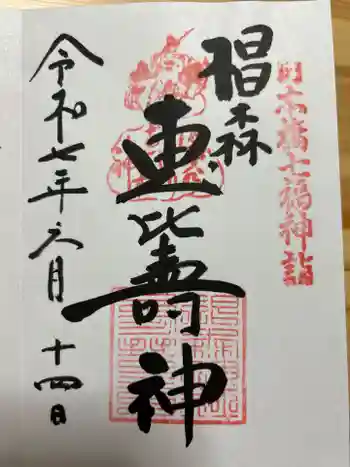 日本橋七福神詣
椙森
恵比寿神
令和七年六月十四日